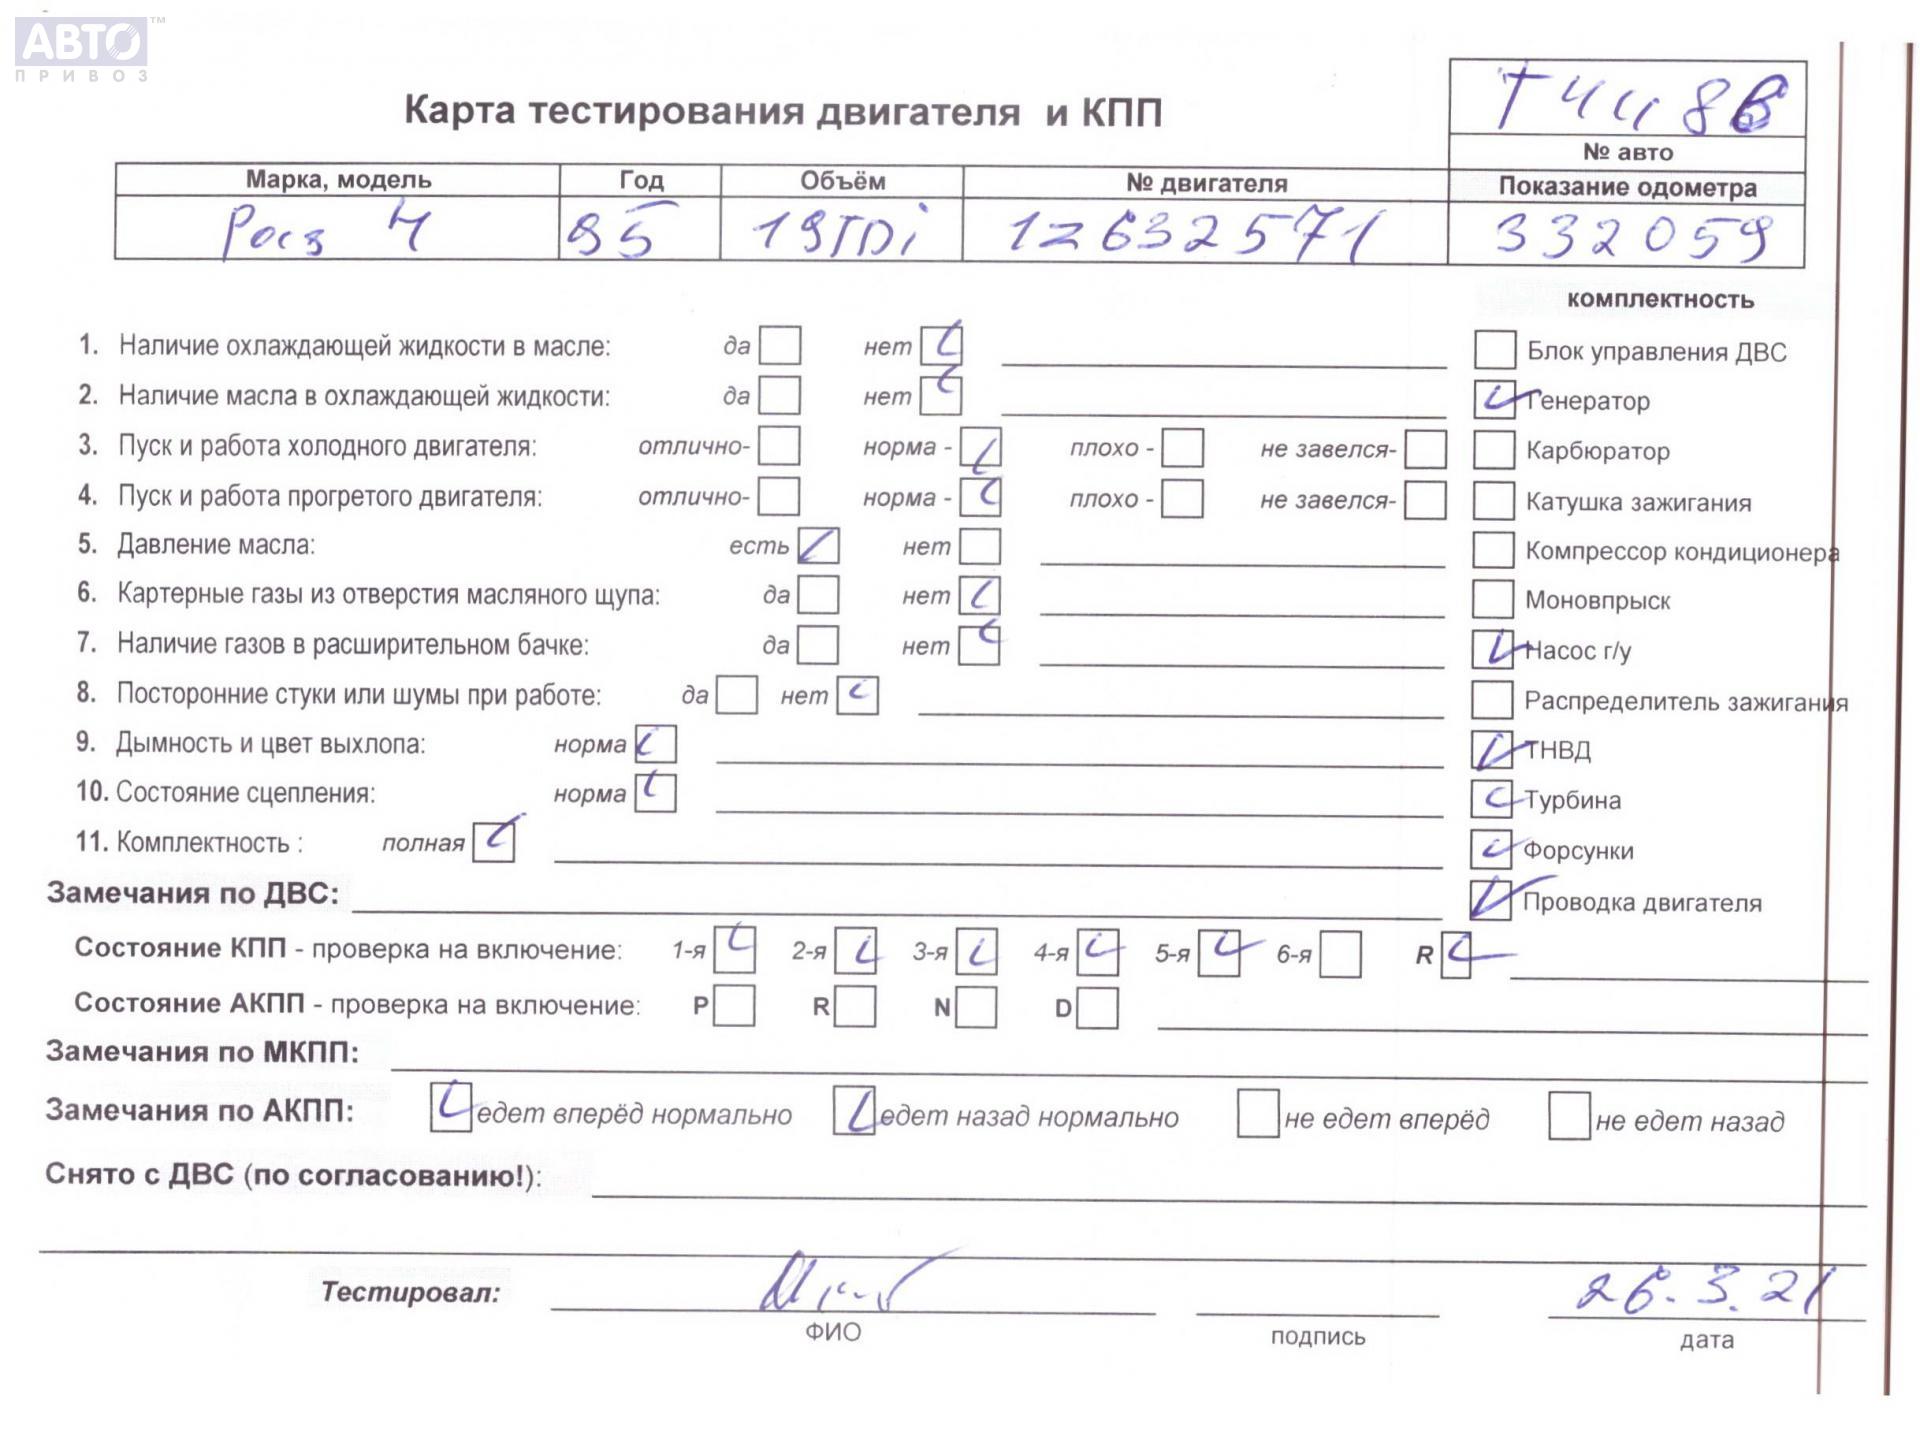 АВТО™
ПРИВОЗ
Карта тестирования двигателя и КПП
№ авто
Марка, модель Год Объём № двигателя Показание одометра
95 1 9 TDi 1Z632571 332059
комплектность
1. Наличие охлаждающей жидкости в масле: да нет Блок управления ДВС
2. Наличие масла в охлаждающей жидкости: да нет Генератор
3. Пуск и работа холодного двигателя: отлично- норма - плохо - не завелся- Карбюратор
4. Пуск и работа прогретого двигателя: отлично- норма - плохо - не завелся- Катушка зажигания
5. Давление масла: есть нет Компрессор кондиционера
6. Картерные газы из отверстия масляного щупа: да нет Моновпрыск
7. Наличие газов в расширительном бачке: да нет Насос г/у
8. Посторонние стуки или шумы при работе: да нет Распределитель зажигания
9. Дымность и цвет выхлопа: норма ТНВД
10. Состояние сцепления: норма Турбина
11. Комплектность : полная Форсунки
Замечания по ДВС: Проводка двигателя
Состояние КПП - проверка на включение: 1-я 2-я 3-я 4-я 5-я 6-я R
Состояние АКПП - проверка на включение: P R N D
Замечания по МКПП:
Замечания по АКПП: едет вперёд нормально едет назад нормально не едет вперёд не едет назад
Снято с ДВС (по согласованию!):
Тестировал: 26.3.21
ФИО подпись дата